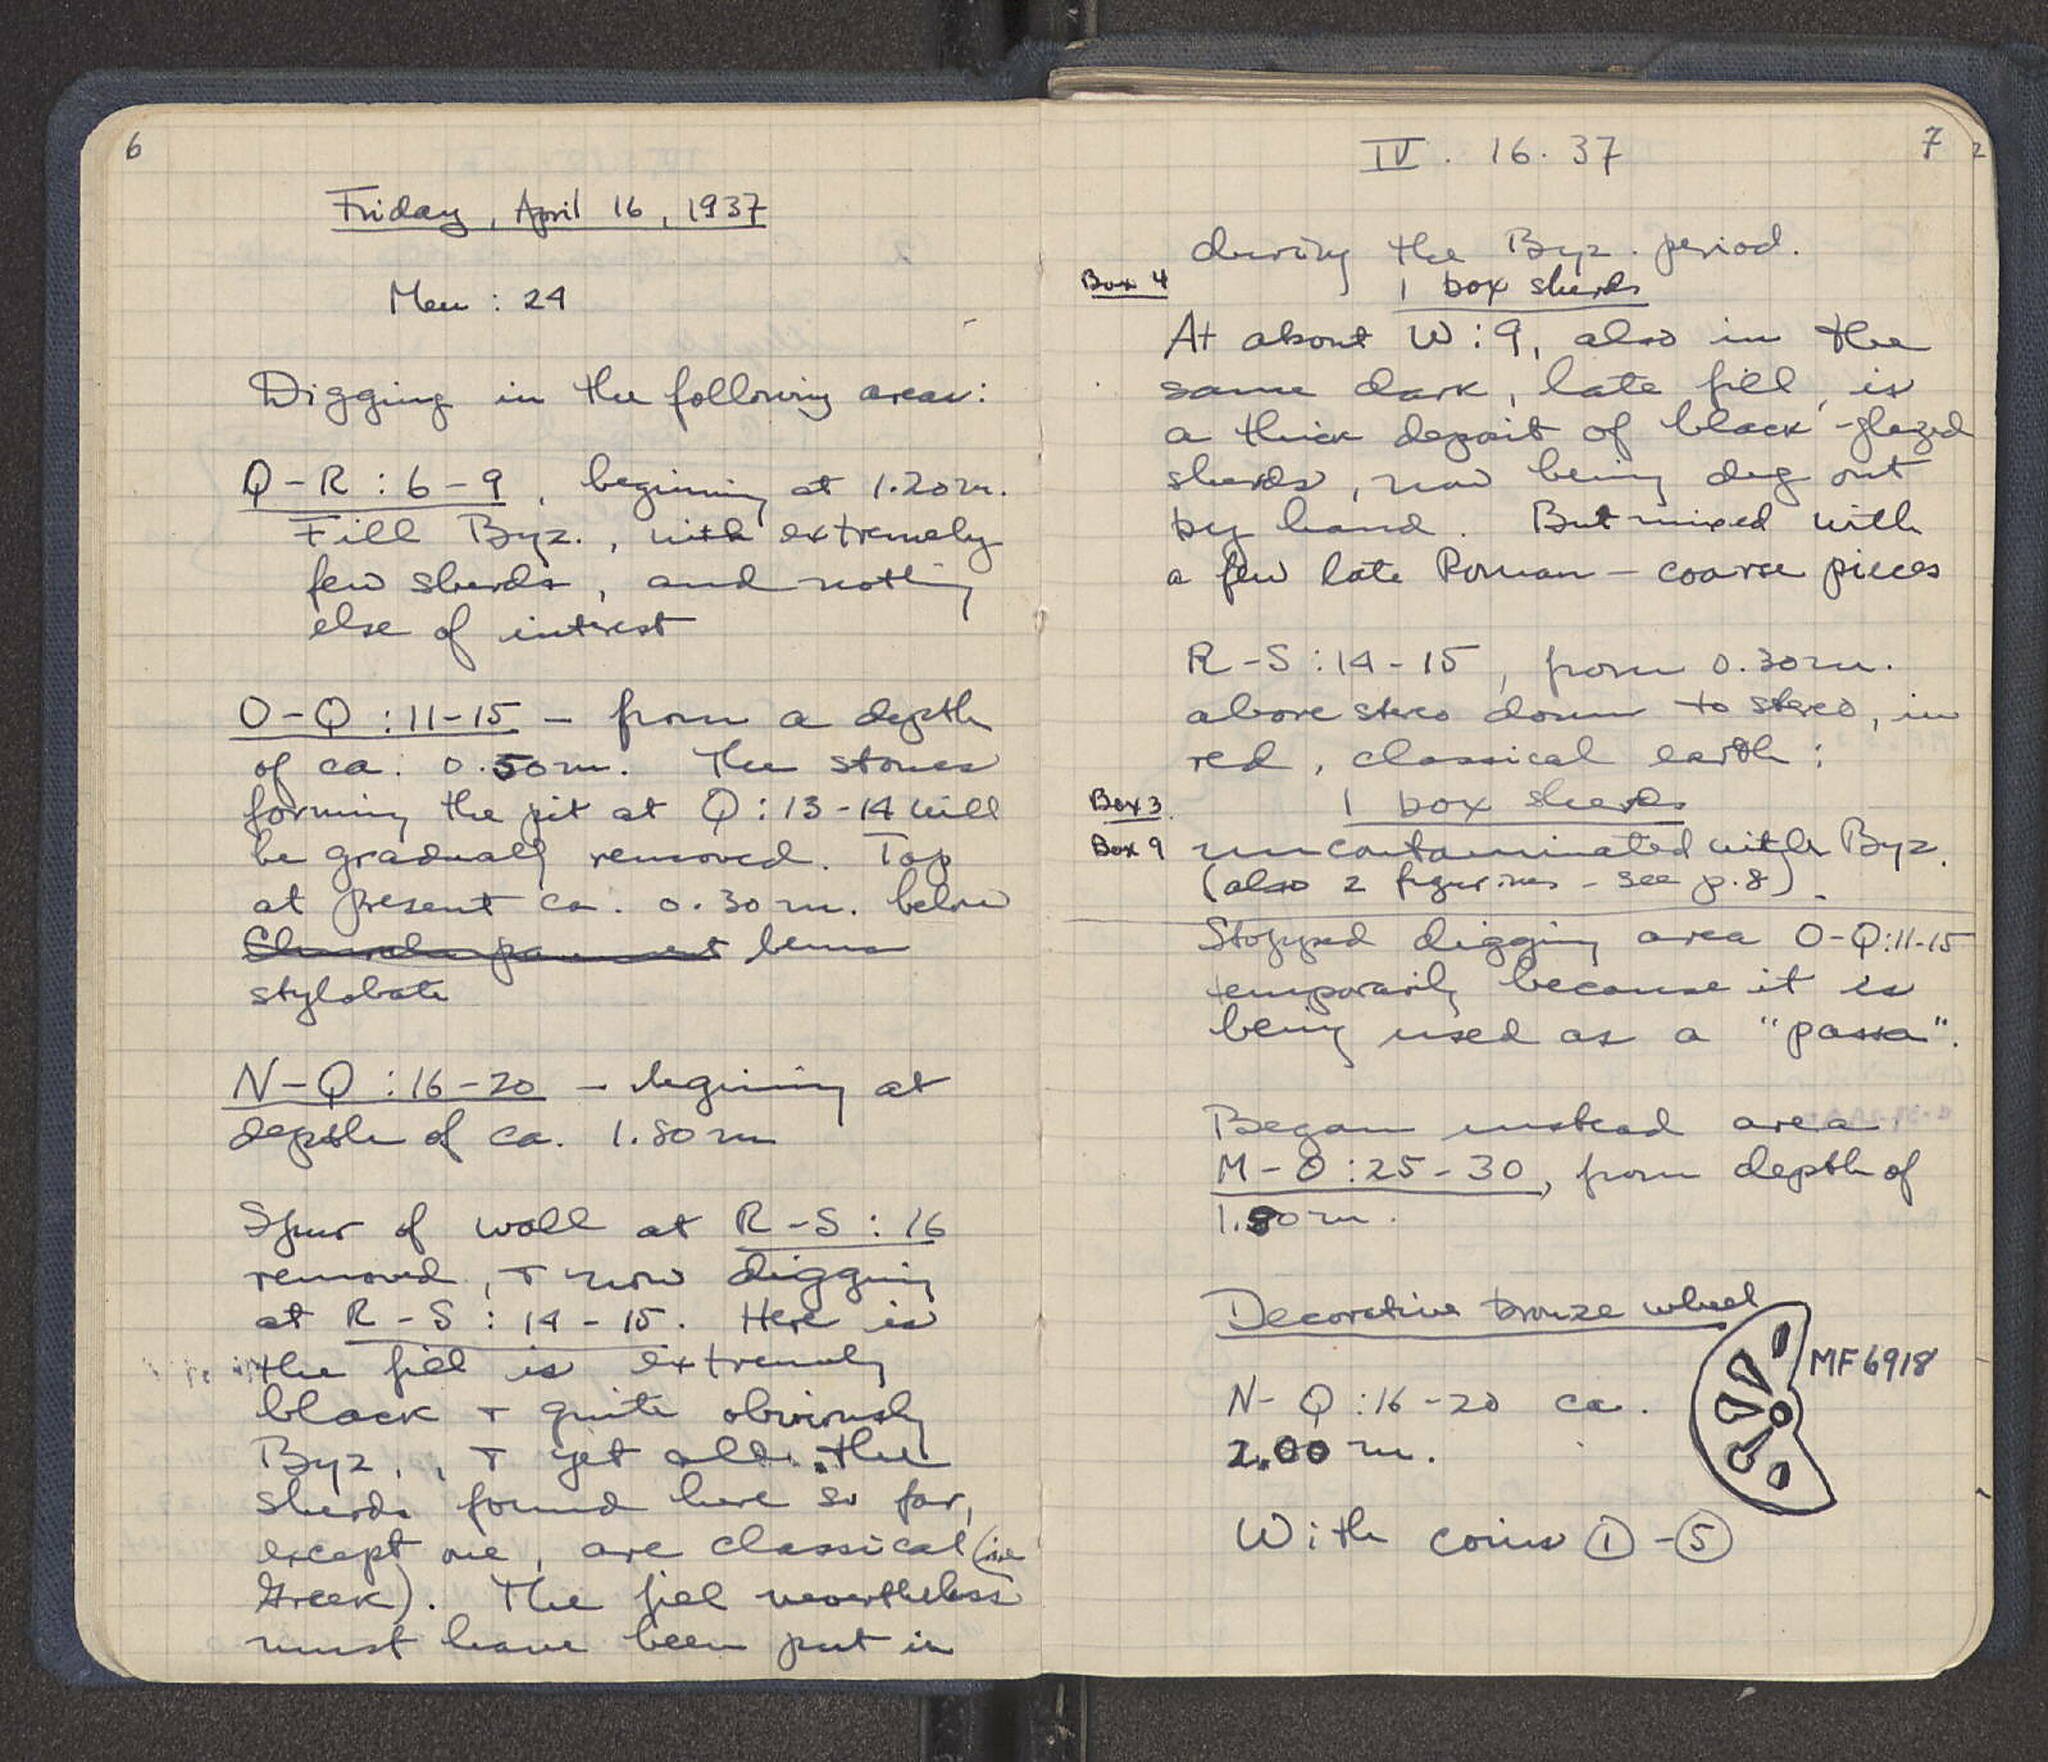 6
Friday, April 16, 1937
Men : 24
Digging in the following areas:
Q-R : 6-9, beginning at 1.20 m.
Fill Byz., with extremely
few sherds, and nothing
else of interest
O-Q : 11-15 – from a depth
of ca. 0.50 m. The stones
forming the pit at Q : 13-14 will
be gradually removed. Top
at present ca. 0.30 m. below
Church pavement bema
stylobate
N-Q : 16-20 – beginning at
depth of ca. 1.80 m
Spur of wall at R-S : 16
removed, + now digging
at R-S : 14-15. Here is
the fill is extremely
black + quite obviously
Byz., + yet all the
sherds found here so far,
except one, are classical (i.e.
Greek). The fill nevertheless
must have been put in
IV. 16. 37
7
during the Byz. period.
Box 4 1 box sherds
At about W : 9, also in the
same dark, late fill, is
a thick deposit of black-glazed
sherds, now being dug out
by hand. But mixed with
a few late Roman – coarse pieces
R-S : 14-15, from 0.30 m.
above stereo down to stereo, in
red, classical earth :
Box 3 1 box sherds
Box 9 uncontaminated with Byz.
(also 2 figurines – see p. 8).
Stopped digging area O-Q : 11-15
temporarily because it is
being used as a "passa".
Began instead area
M-O : 25-30, from depth of
1.80 m.
Decorative bronze wheel
MF 6918
N-Q : 16-20 ca.
2.00 m.
With coins ① - ⑤